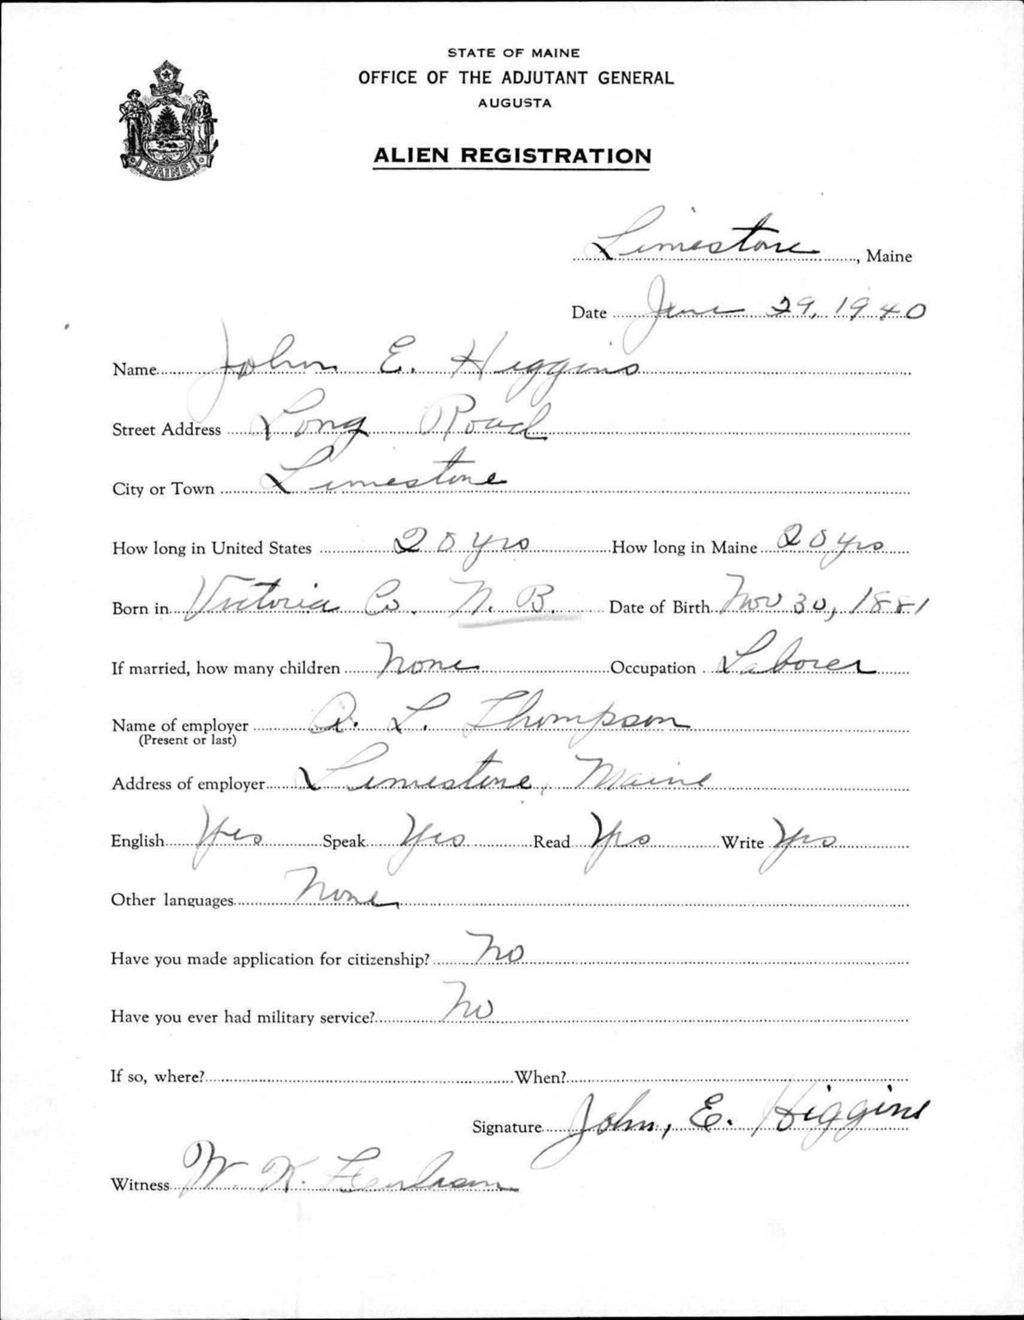 STATE OF MAINE
OFFICE OF THE ADJUTANT GENERAL
AUGUSTA
ALIEN REGISTRATION
MAINE
Limestone, Maine
Date June 29, 1940
Name John E. Higgins
Street Address Long Road
City or Town Limestone
How long in United States 20 yrs How long in Maine 20 yrs
Born in Victoria Co. N. B. Date of Birth Nov 30, 1881
If married, how many children None Occupation Laborer
Name of employer A. L. Thompson
(Present or last)
Address of employer Limestone, Maine
English Yes Speak Yes Read Yes Write Yes
Other languages None
Have you made application for citizenship? No
Have you ever had military service? No
If so, where? When?
Signature John, E. Higgins
Witness W. K.